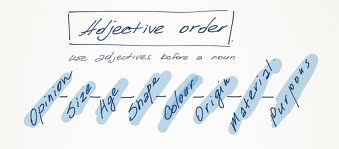 Adjective order
use adjectives before a noun
Opinion - Size - Age - Shape - Colour - Origin - Material - purpous